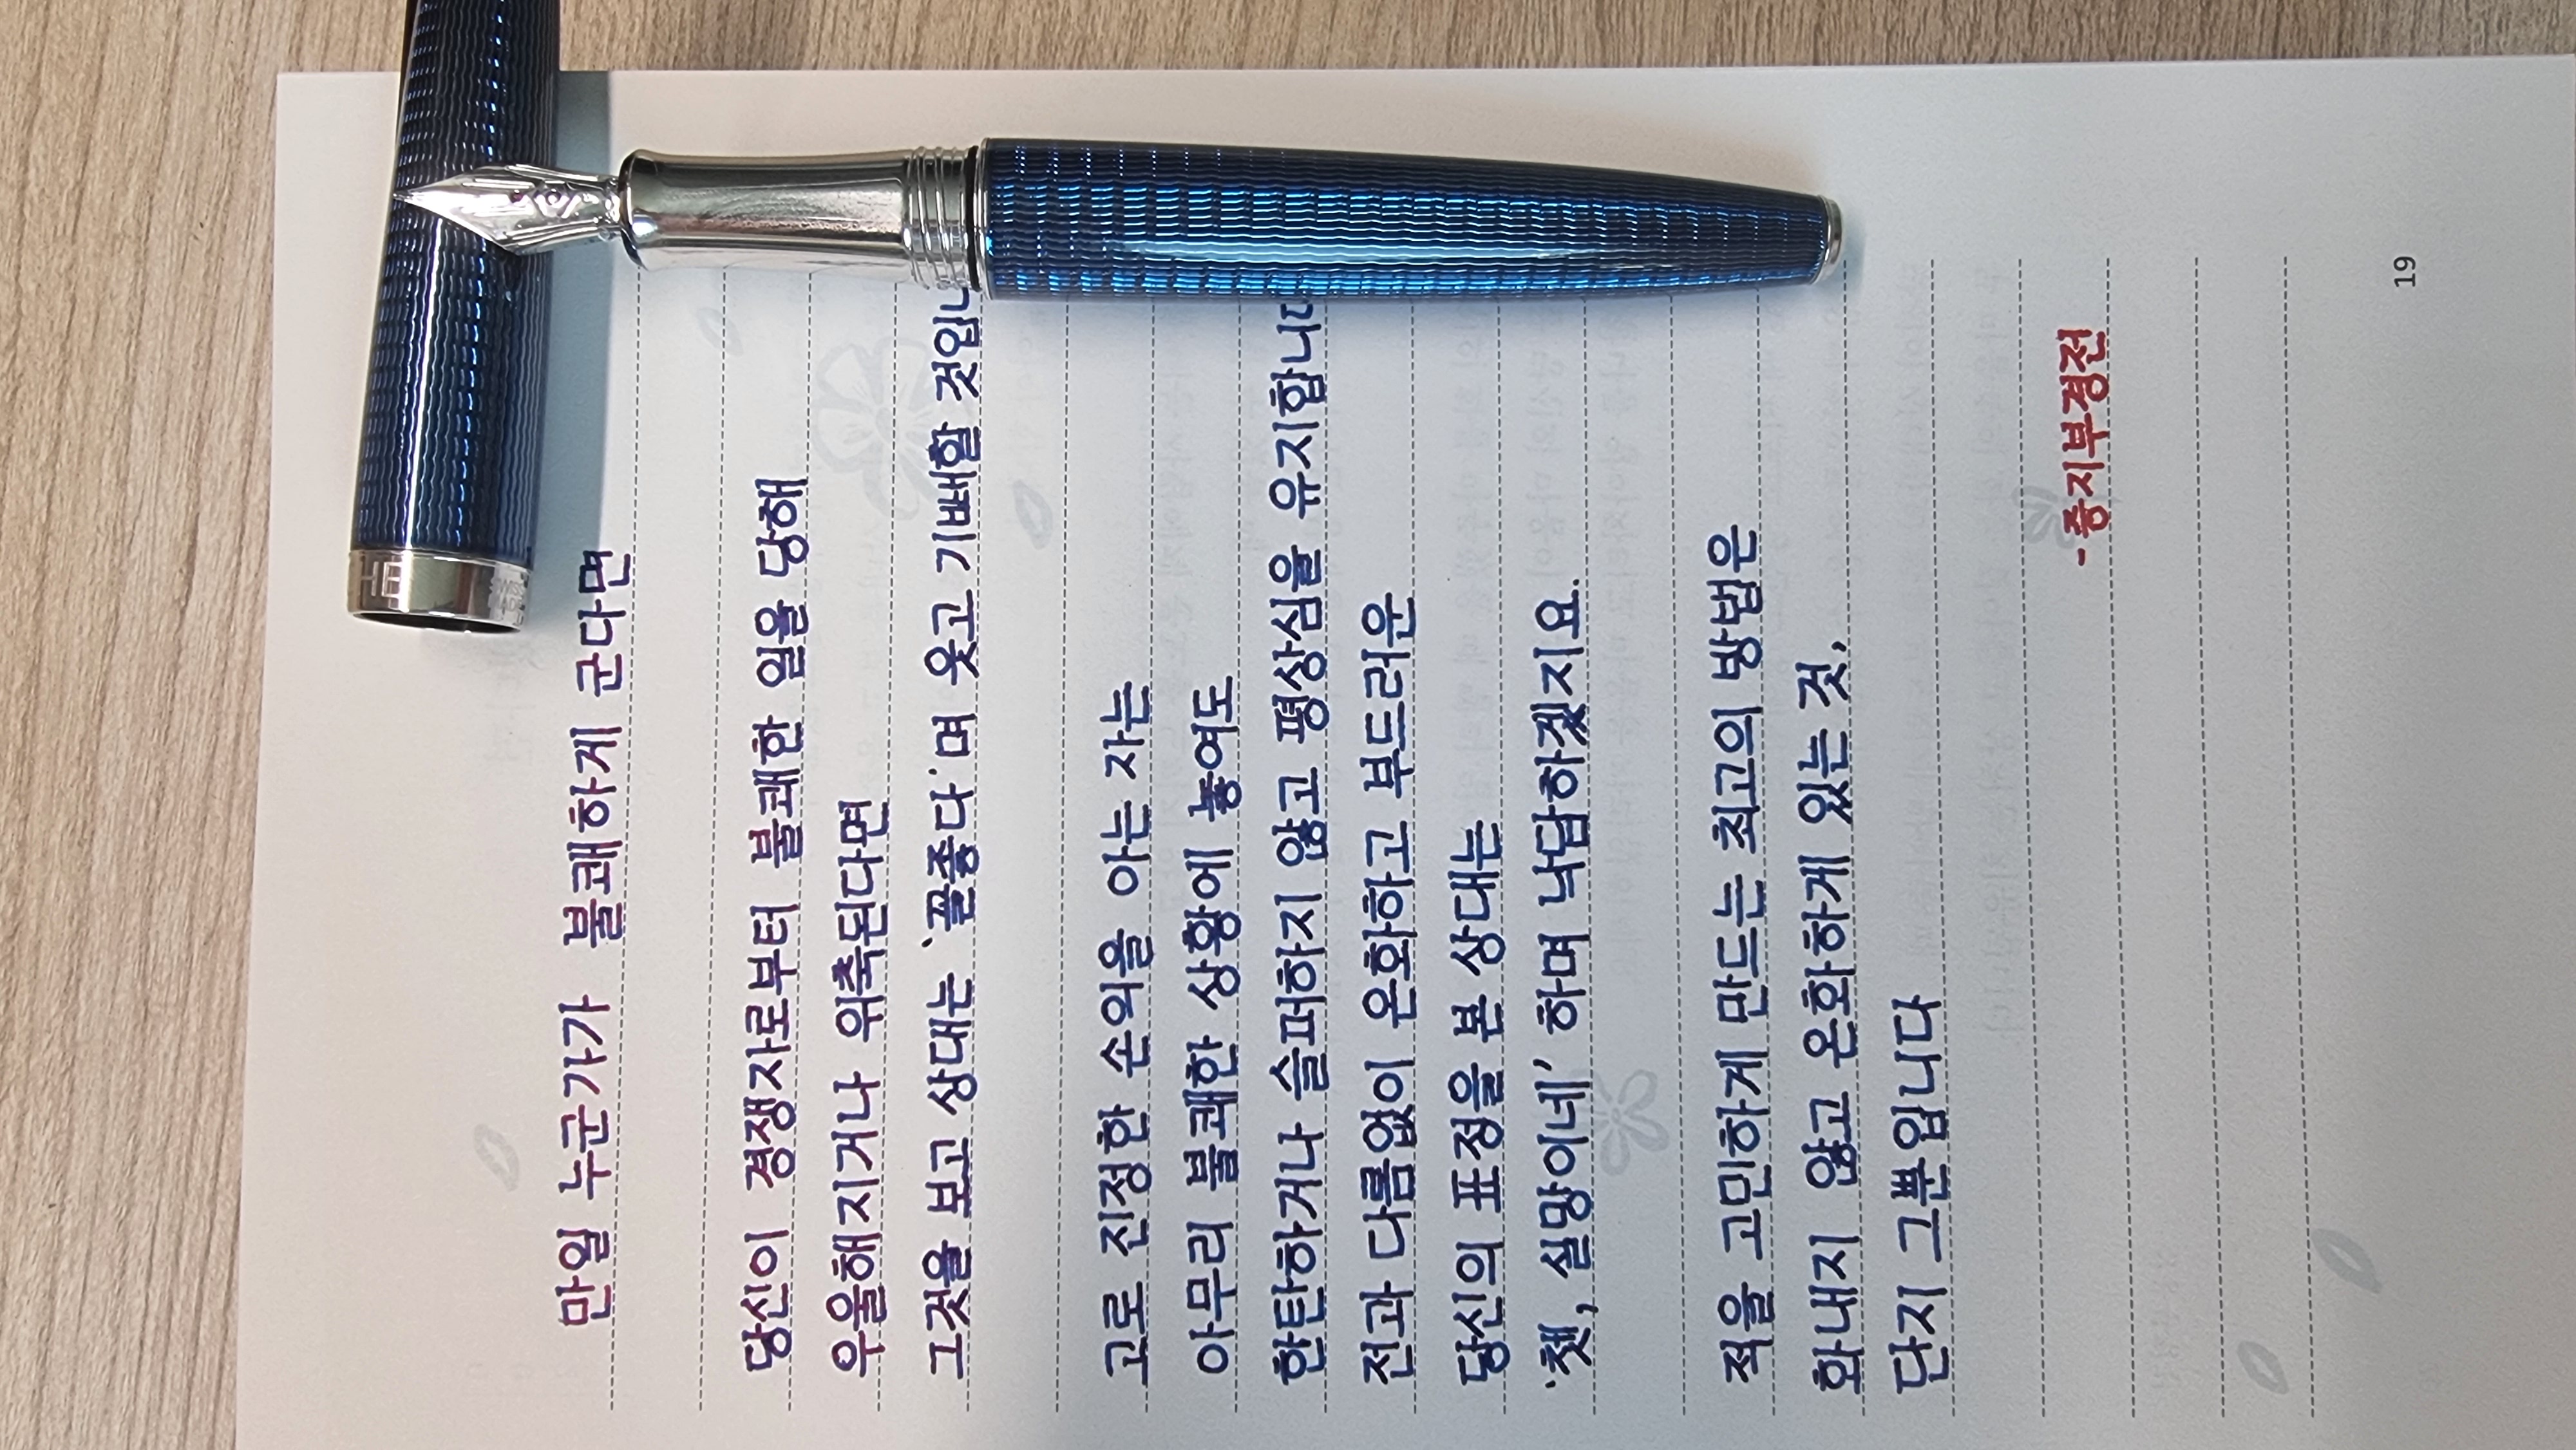 만일 누군가가 불쾌하게 군다면
당신이 경쟁자로부터 불쾌한 일을 당해
우울해지거나 위축된다면
그것을 보고 상대는 '꼴좋다'며 웃고 기뻐할 것입니
고로 진정한 손익을 아는 자는
아무리 불쾌한 상황에 놓여도
한탄하거나 슬퍼하지 않고 평상심을 유지합니다
전과 다름없이 온화하고 부드러운
당신의 표정을 본 상대는
'쳇, 실망이네' 하며 낙담하겠지요.
적을 고민하게 만드는 최고의 방법은
화내지 않고 온화하게 있는 것,
단지 그뿐입니다
-증지부경전
19